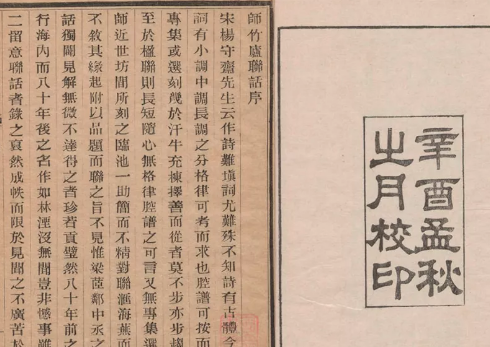 辛酉孟秋
之月校印
師竹廬聯話序
宋楊守齋先生云作詩難填詞尤難殊不知詩有古體今
詞有小調中調長調之分格律可考而求也腔譜可按而
專集或選刻幾於汗牛充棟擇善而從者莫不步亦步趨
至於楹聯則長短隨心無格律腔譜之可言又無專集選
師近世坊間所刻之臨池一助簡而不精對聯滙海蕪而
不敘其緣起附以品題而聯之旨不見惟梁茝鄰中丞之
話獨闢見解無微不達得之者珍若貢璧然八十年前之
行海內而八十年後之名作如林湮沒無聞豈非憾事難
二留意聯話者錄之裒然成帙而限於見聞之不廣苦於